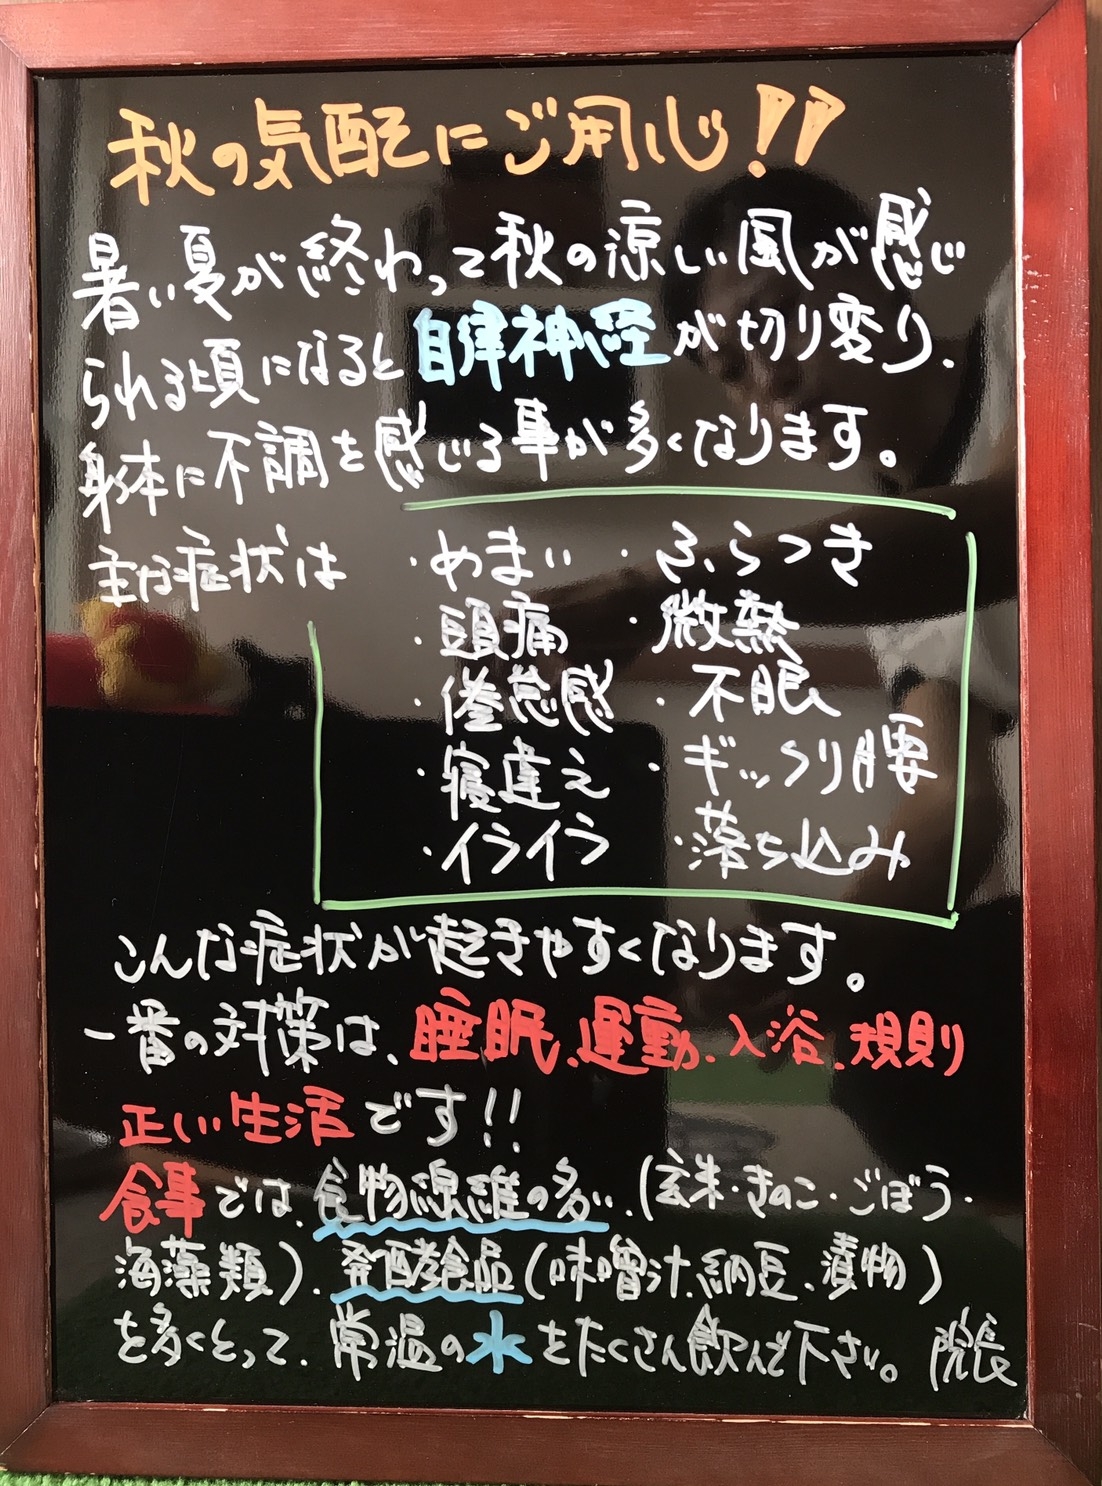 秋の気配にご用心!!
暑い夏が終わって秋の涼しい風が感じ
られる頃になると自律神経が切り変り、
身体に不調を感じる事が多くなります。
主な症状は
・めまい ・ふらつき
・頭痛 ・微熱
・倦怠感 ・不眠
・寝違え ・ギックリ腰
・イライラ ・落ち込み
こんな症状が起きやすくなります。
一番の対策は、睡眠、運動、入浴、規則
正しい生活です!!
食事では、食物線維の多い、(玄米・きのこ・ごぼう・
海藻類)、発酵食品(味噌汁、納豆、漬物)
を多くとって、常温の水をたくさん飲んで下さい。 院長